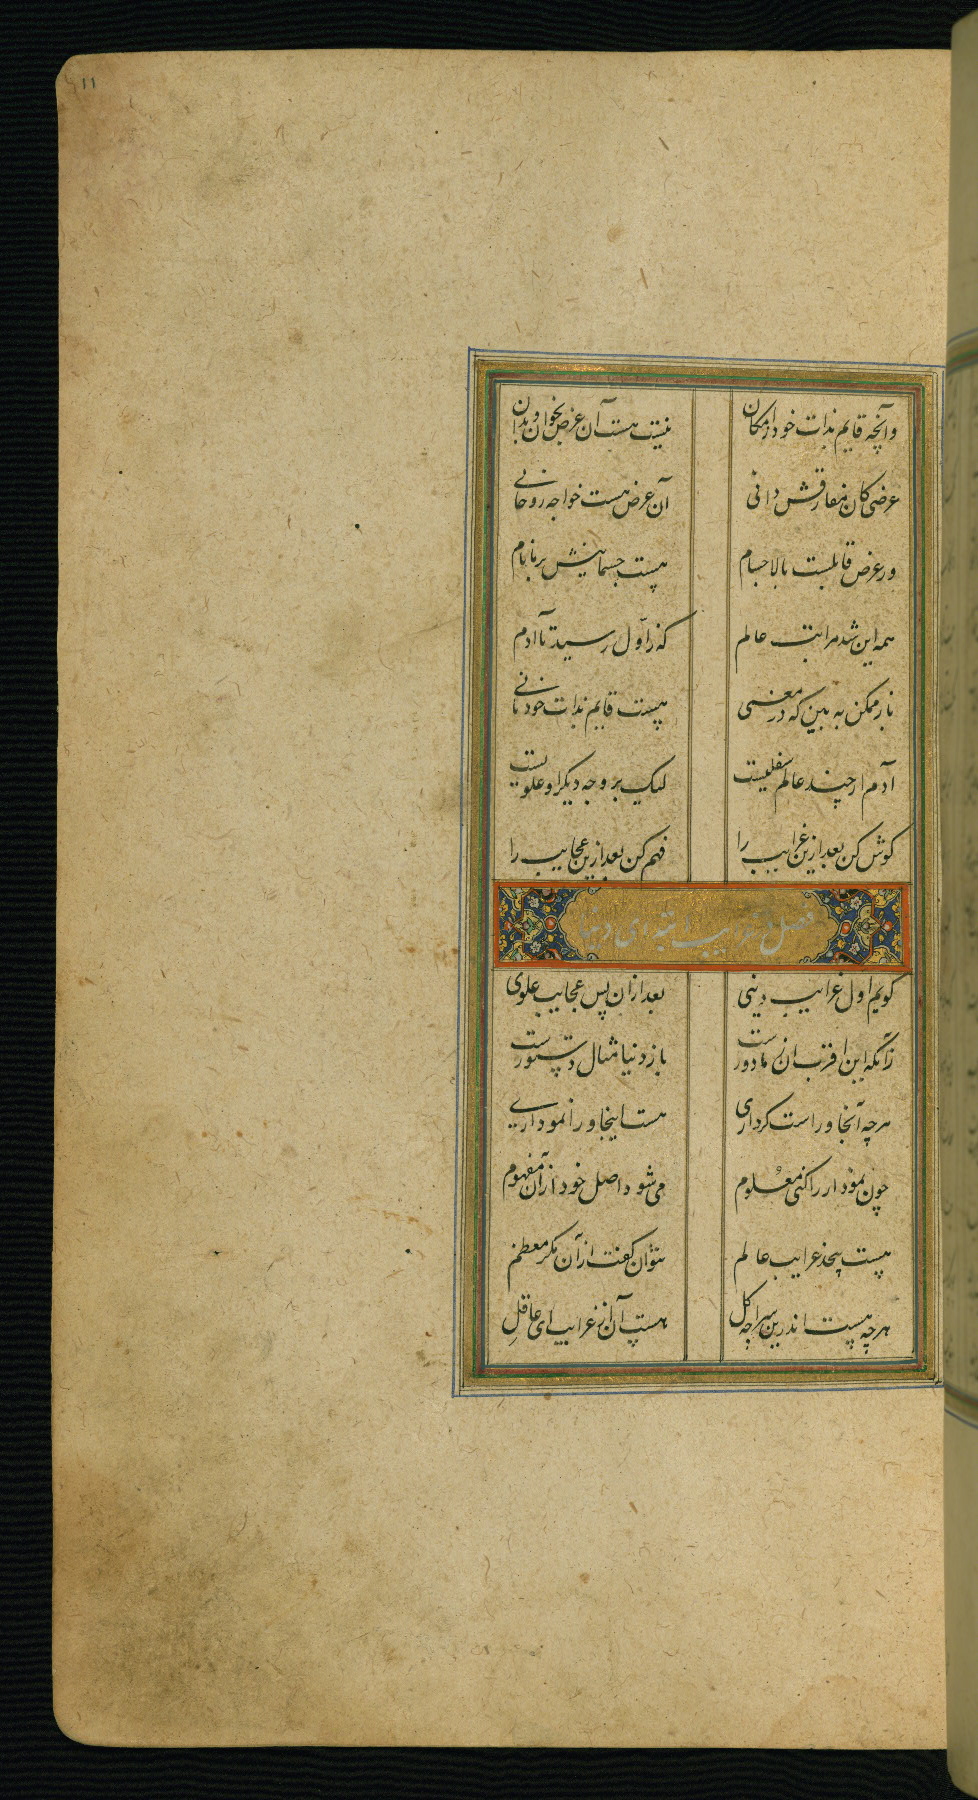 ۱۱
وآنچه قایم بذات خود ز امکان نیست هست آن عرض بخوان و بدان
عرضی کان مفارقش دانی آن عرض هست خواجه روحانی
ور عرض قابلست بالاجسام هست جسمانیش بر ما نام
همه این شد مراتب عالم که ز اول رسید تا آدم
باز ممکن به بین که در معنی هست قایم بذات خود یا نی
آدم ار چند عالم سفلیست لیک بر وجه دیگر او علویست
گوش کن بعد ازین غرایب را فهم کن بعد ازین عجایب را
فصل غرایب
گویم اول غرایب دینی بعد از آن پس عجایب علوی
زآنکه این اقرب آن ز ما دورست باز دنیا مثال دستورست
هرچه آنجا وراست کرداری هست اینجا ورا نموداری
چون نمودار را کنی معلوم می شود اصل خود از آن مفهوم
هست بیحد غرایب عالم نتوان گفت از آن مگر معظم
هرچه هست اندرین سراچه گل هست آن از غرایب ای عاقل